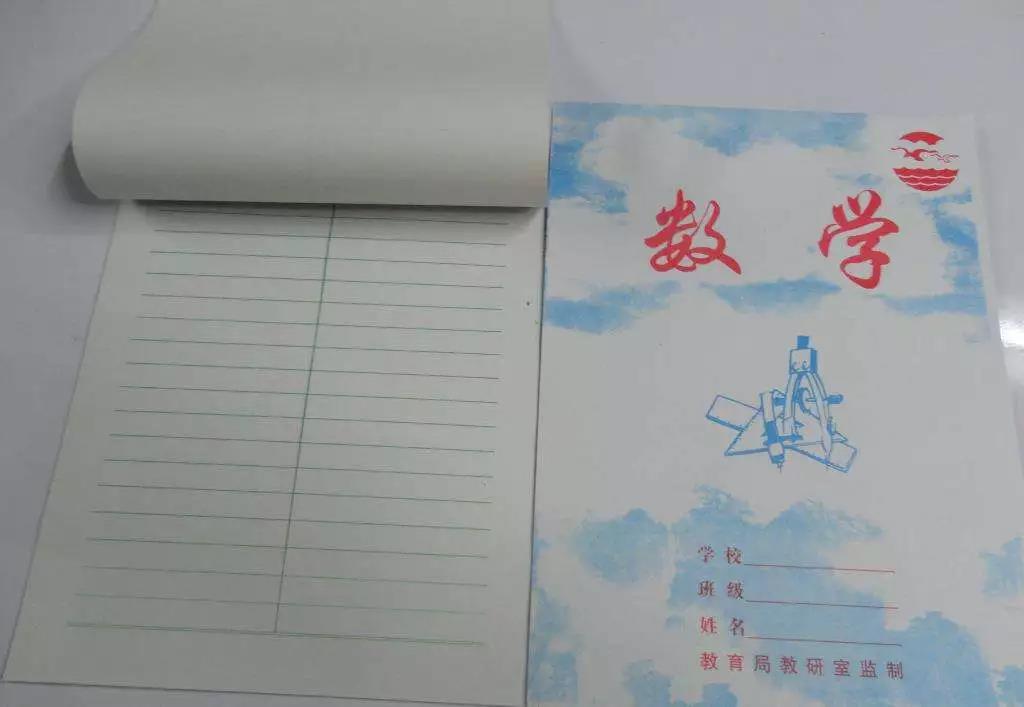 数 学
学 校
班 级
姓 名
教育局教研室监制